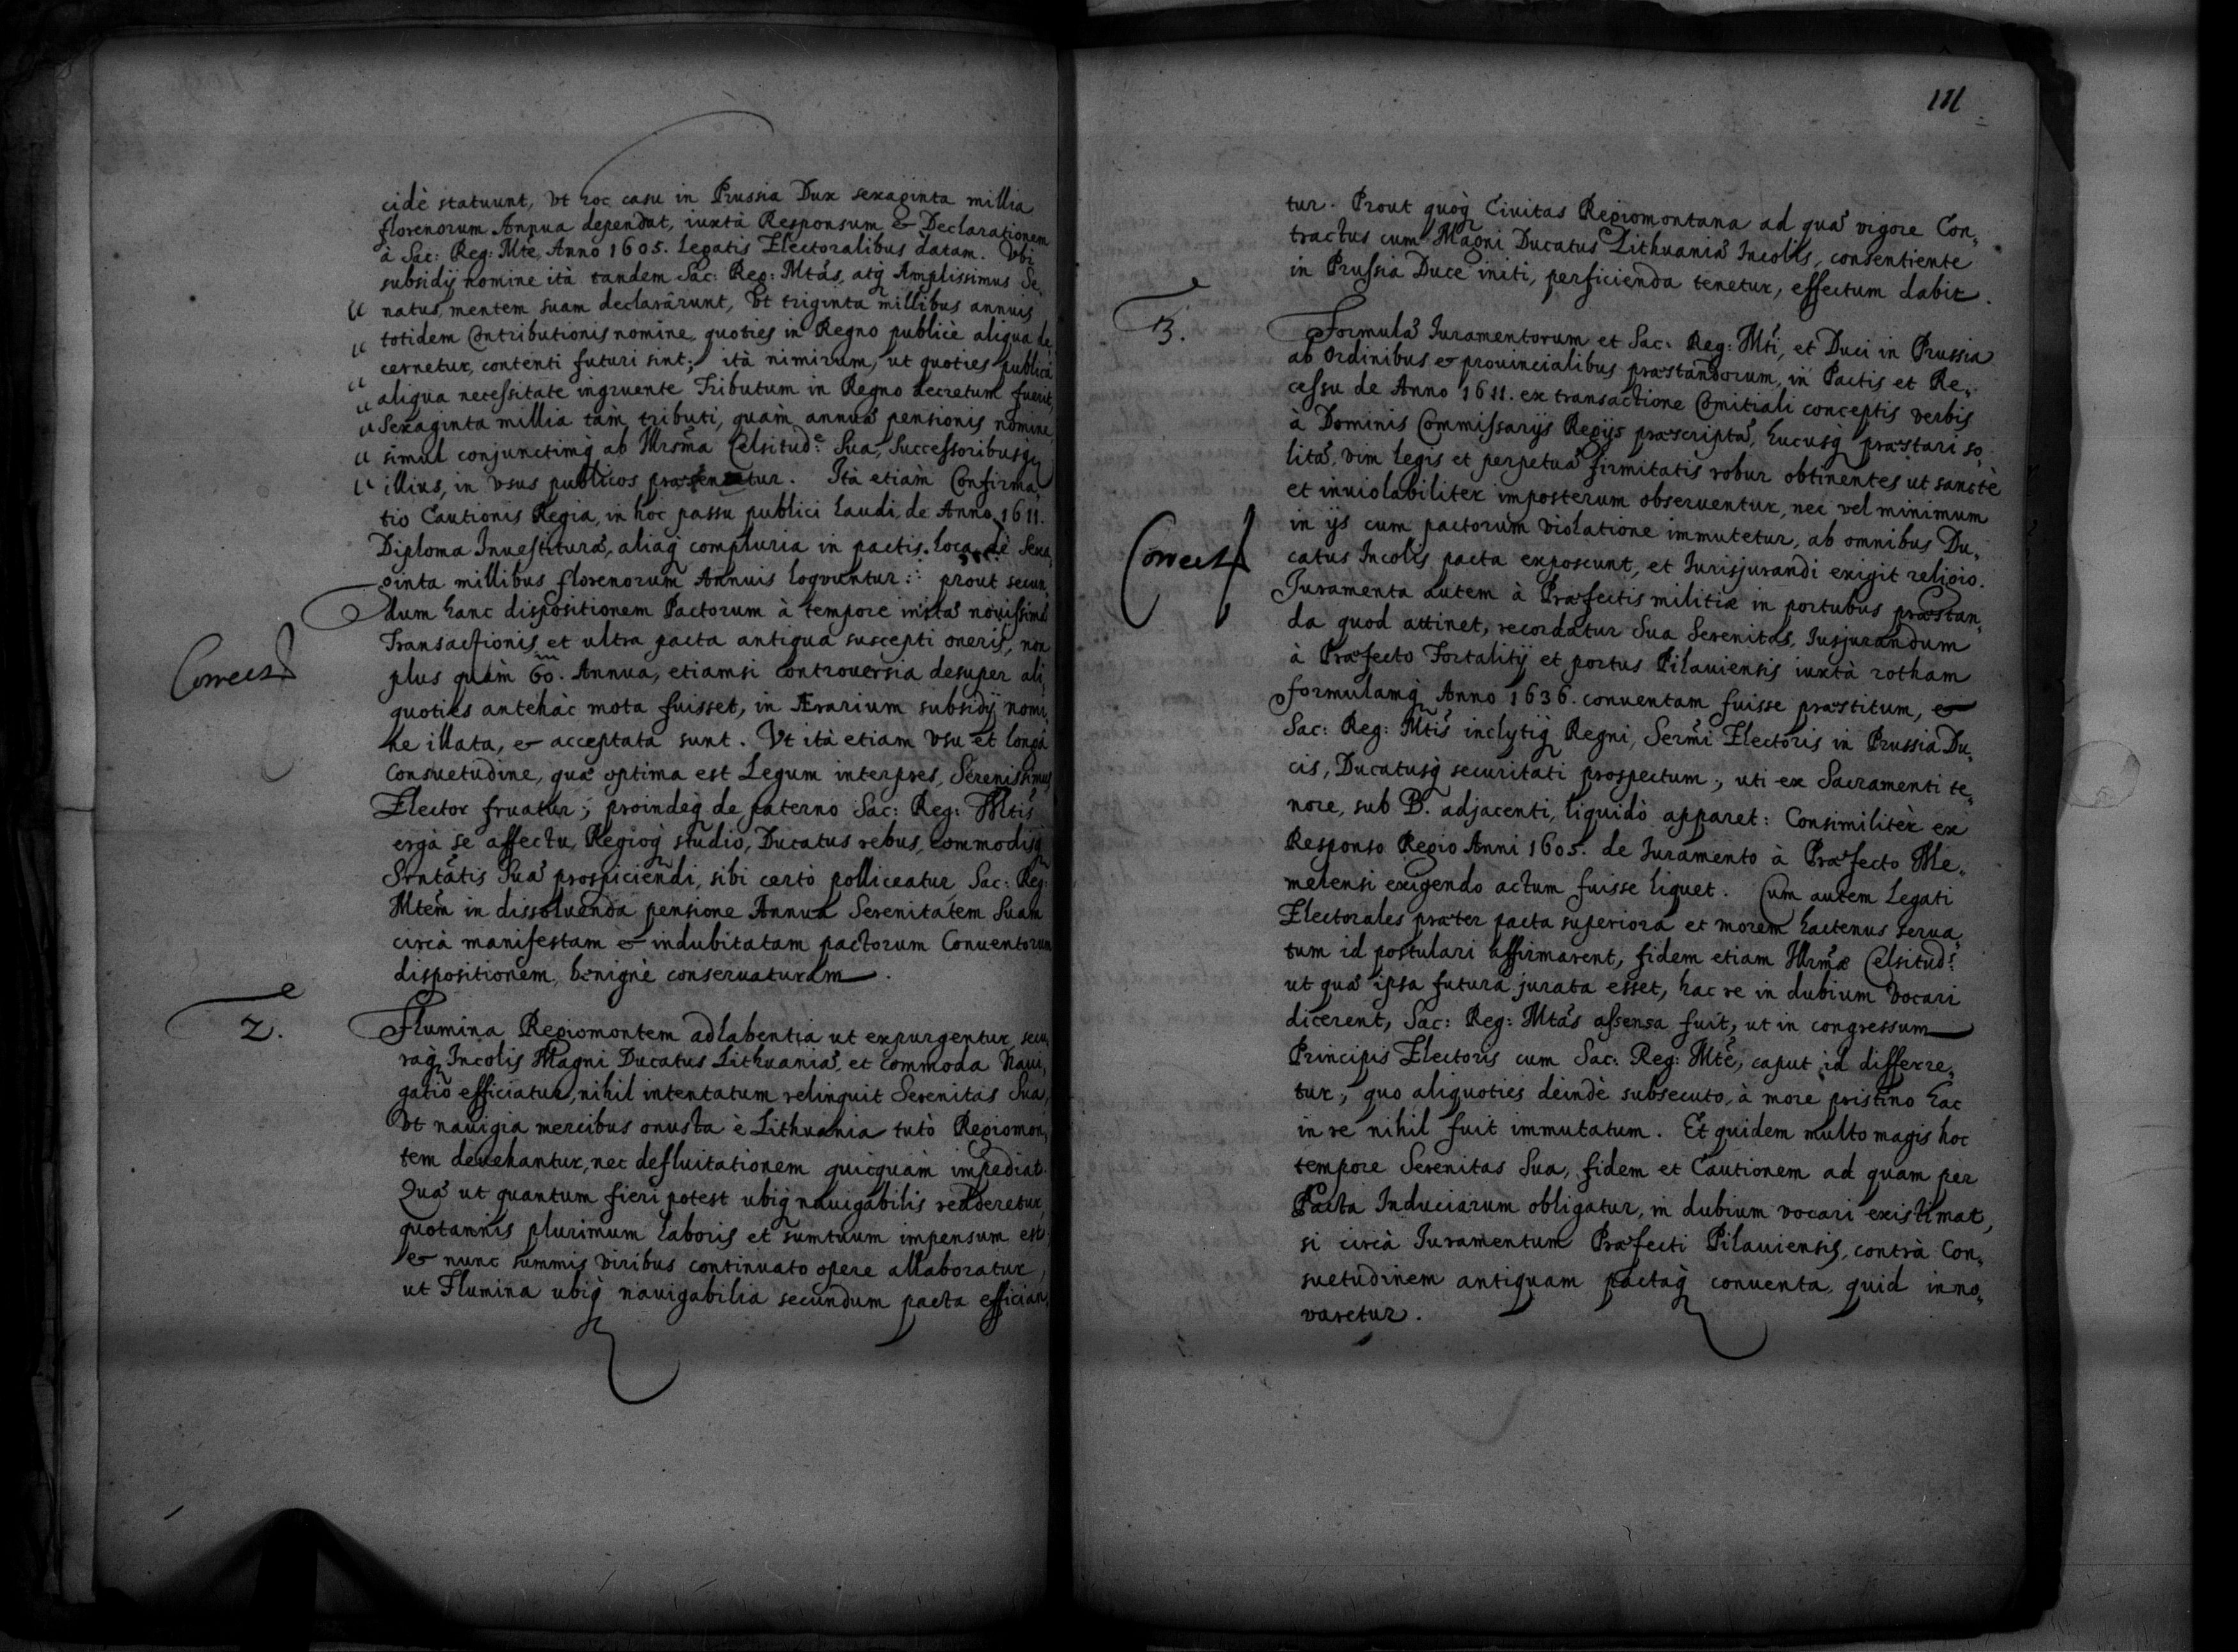 cidè statuunt, Vt hoc casu in Prussia Dux sexaginta millia
florenorum Annua dependat, iuxtà Responsum & Declarationem
à Sac: Reg: Mte, Anno 1605. Legatis Electoralibus datam. Vbi
subsidij nomine ità tandem Sac: Reg: Mtás, atq Amplissimus Se„
natus, mentem suam declarârunt, Vt triginta millibus annuis
totidem Contributionis nomine, quoties in Regno publicè aliqua de„
cernetur, contenti futuri sint; ità nimirum, ut quoties publica
aliqua necessitate ingruente Tributum in Regno decretum fuerit,
Sexaginta millia tàm tributi, quàm annuæ pensionis nomine,
simul conjunctimq ab Illrsma Celsitude: Sua, Successoribusq
illius, in Vsus publicos præsentetur. Ità etiàm Confirma„
tio Cautionis Regia, in hoc passu publici laudi, de Anno 1611.
Diploma Inuestituræ, aliaq compluria in pactis loca de Sexa„
ginta millibus florenorum Annuis loquuntur: prout secun„
dum hanc dispositionem Pactorum à tempore initæ nouissimæ
Transactionis, et ultra pacta antiqua suscepti oneris, non
plus quàm 60. Annua, etiamsi controuersia desuper ali„
quoties antehàc mota fuisset, in Ærarium subsidij nomi„
ne illata, & acceptata sunt. Vt ità etiam Vsu et longa
Consuetudine, quæ optima est Legum interpres, Serenissimus
Elector fruatur; proindeq de paterno Sac: Reg: Mtis
ergà se affectu, Regioq studio, Ducatus rebus, commodisq
Srntâtis Suæ prospiciendi, sibi certò polliceatur, Sac: Reg:
Mtem in dissoluenda pensione Annua Serenitatem Suam
circà manifestam & indubitatam pactorum Conuentorum
dispositionem, benignè conseruaturam.
Correct
2.
Flumina Regiomontem adlabentia ut expurgentur, secu„
raq Incolis Magni Ducatus Lithuaniæ, et Commoda Naui„
gatio efficiatur, nihil intentatum relinquit Serenitas Sua,
Vt nauigia mercibus onusta è Lithuania tutò Regiomon„
tem deuehantur, nec defluitationem quicquàm impediat.
Quæ ut quantum fieri potest ubiq nauigabilis redderetur,
quotannis plurimum laboris et sumtuum impensum est
& nunc summis viribus continuato opere allaboratur,
ut Flumina ubiq nauigabilia secundum pacta effician„
111
tur. Prout quoq Ciuitas Regiomontana ad quæ vigore Con„
tractus cum Magni Ducatus Lithuaniæ Incolis, consentiente
in Prussia Duce initi, perficienda tenetur, effectum dabit.
3.
Formulæ Iuramentorum et Sac: Reg: Mti, et Duci in Prussia
ab Ordinibus & prouincialibus præstandorum, in Pactis et Re„
cessu de Anno 1611. ex transactione Comitiali conceptis verbis
à Dominis Commissarijs Regijs præscriptæ, hucusq præstari so„
litæ, vim legis et perpetuæ firmitatis robur obtinentes ut sanctè
et inuiolabiliter imposterum obseruentur, nec vel minimum
in ijs cum pactorum violatione immutetur, ab omnibus Du„
catus Incolis pacta exposcunt, et Iurisjurandi exigit religio.
Correct
Iuramenta autem à Præfectis militiæ in portubus præstan„
da quod attinet, recordatur Sua Serenitas, Iusjurandum
à Præfecto Fortalitij et portus Pilauiensis iuxtà rotham
formulamq Anno 1636. conuentam fuisse præstitum, &
Sac: Reg: Mtis inclytiq Regni, Sermi Electoris in Prussia Du„
cis, Ducatusq securitati prospectum; uti ex Sacramenti te„
nore, sub B. adjacenti, liquidò apparet: Consimilitèr ex
Responso Regio Anni 1605. de Iuramento à Præfecto Me„
melensi exigendo actum fuisse liquet. Cum autem Legati
Electorales præter pacta superiora et morem hactenus serua„
tum id postulari affirmarent, fidem etiam Illrmæ Celsituds:
ut quæ ipsa futura jurata esset, hac re in dubium Vocari
dicerent, Sac: Reg: Mtás assensa fuit, ut in congressum
Principis Electoris cum Sac: Reg: Mte, caput id differre„
tur, quo aliquoties deindè subsecuto, à more pristino hac
in re nihil fuit immutatum. Et quidem multo magis hoc
tempore Serenitas Sua, fidem et Cautionem ad quam per
Pacta Induciarum obligatur, in dubium vocari existimat,
si circà Iuramentum Præfecti Pilauiensis, contrà Con„
suetudinem antiquam pactaq conuenta, quid inno„
varetur.